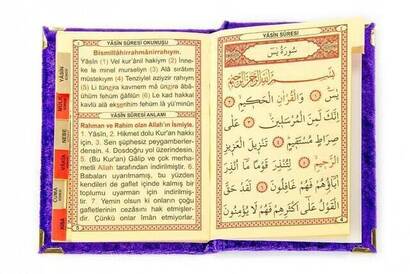 YÂSÎN SÛRESİ OKUNUŞU
Bismillâhirrahmânirrahîm.
Yâsîn (1) Vel kur'ânil hakiym (2) İnne-
ke le minel murseliyn (3) Alâ sırâtım
müstekıym (4) Tenziylel azizir rahıym
(5) Li tünzira kavmem mâ ünzira âbâ-
ühüm fehüm ğâfilûn (6) Le kad hakkal
kavlü alâ ekserihim fehüm lâ yü'minûn
YÂSÎN SÛRESİ ANLAMI
Rahman ve Rahim olan Allah'ın ismiyle.
1. Yâsîn, 2. Hikmet dolu Kur'an hakkı
için, 3. Sen şüphesiz peygamberler-
densin. 4. Dosdoğru yol üzerindesin.
5. (Bu Kur'an) Galip ve çok merha-
metli Allah tarafından indirilmiştir. 6.
Babaları uyarılmamış, bu yüzden
kendileri de gaflet içinde kalmış bir
toplumu uyarman için indirilmiş-
tir. 7. Yemin olsun ki onların çoğu
gafletlerinin cezâsını hak etmişler-
dir. Çünkü onlar îmân etmiyorlar.
YÂSÎN
MÜLK
NEBE
VÂKIA
CUMA
سُورَةُ يٰسٓ
بِسْمِ اللّٰهِ الرَّحْمٰنِ الرَّحِيمِ
يٰسٓ ﴿١﴾ وَالْقُرْاٰنِ الْحَكِيمِ ﴿٢﴾
اِنَّكَ لَمِنَ الْمُرْسَلِينَ ﴿٣﴾ عَلٰى
صِرَاطٍ مُسْتَقِيمٍ ﴿٤﴾ تَنْزِيلَ الْعَزِيزِ
الرَّحِيمِ ﴿٥﴾ لِتُنْذِرَ قَوْمًا مَا اُنْذِرَ
اٰبَاؤُهُمْ فَهُمْ غَافِلُونَ ﴿٦﴾ لَقَدْ حَقَّ
الْقَوْلُ عَلٰى اَكْثَرِهِمْ فَهُمْ لَا يُؤْمِنُونَ